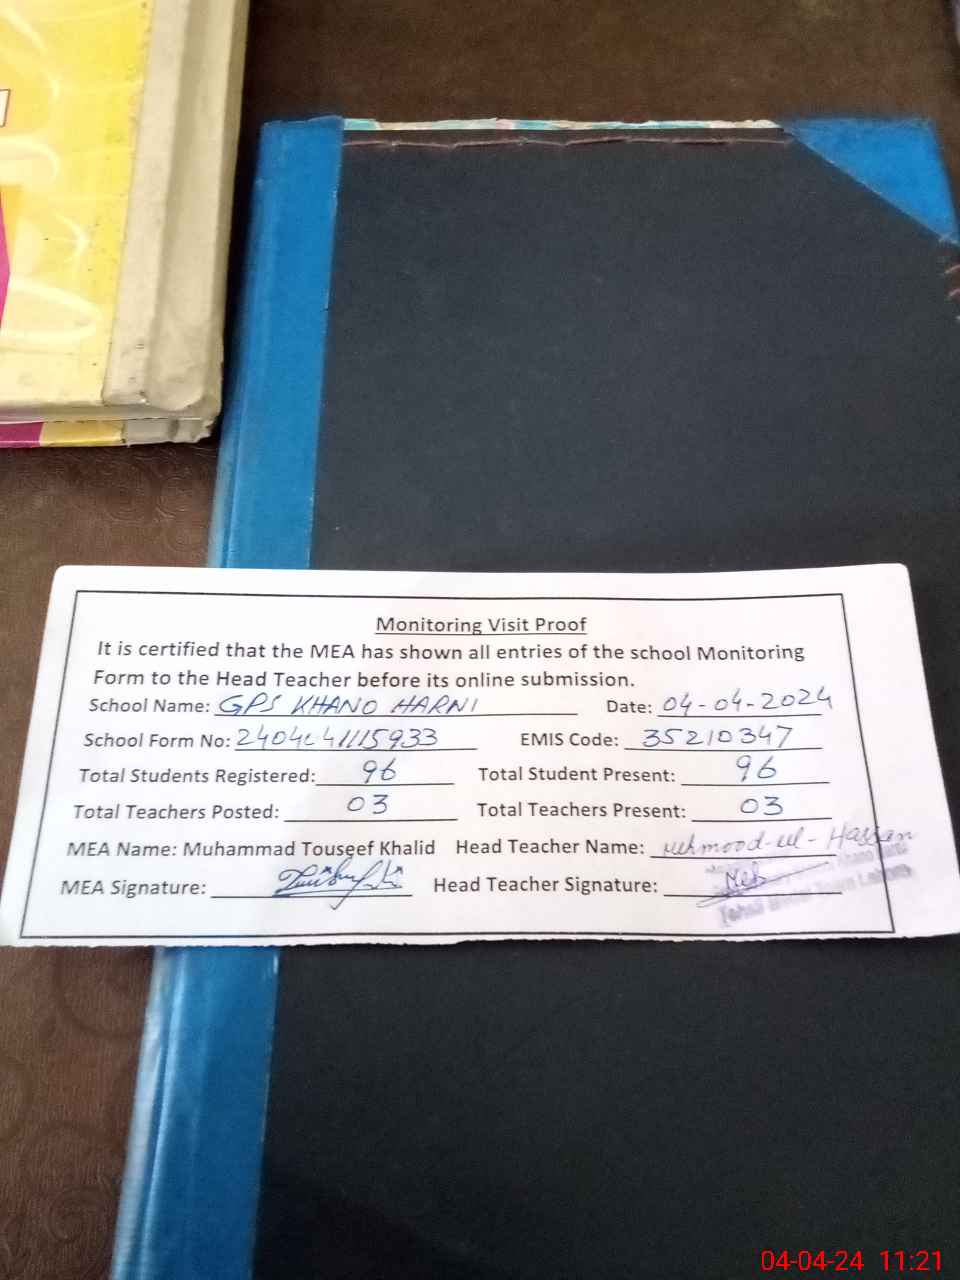 Monitoring Visit Proof
It is certified that the MEA has shown all entries of the school Monitoring
Form to the Head Teacher before its online submission.
School Name: GPS KHANO HARNI Date: 04-04-2024
School Form No: EMIS Code: 35210347
Total Students Registered: 96 Total Student Present: 96
Total Teachers Posted: 03 Total Teachers Present: 03
MEA Name: Muhammad Touseef Khalid Head Teacher Name: Mehmood-ul-Hassan
MEA Signature: Head Teacher Signature:
04-04-24 11:21